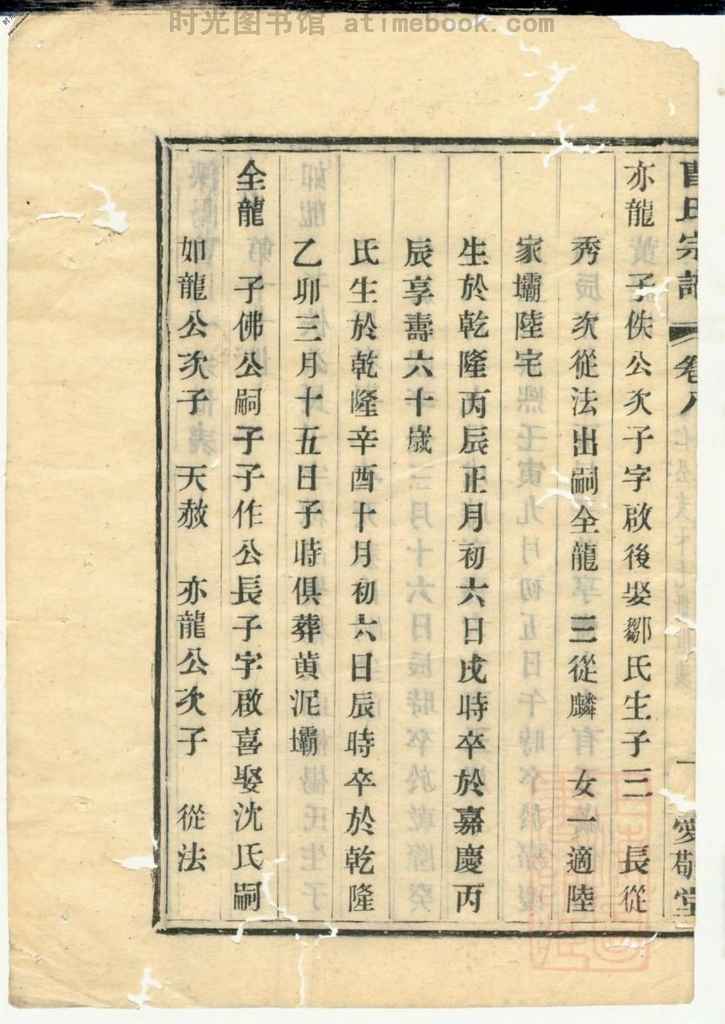 时光图书馆 atimebook.com
曹氏宗譜 卷八 一 愛敬堂
亦龍 子佚公次子字啟後娶鄒氏生子三 長從
秀 次從法出嗣全龍 三從麟 女一適陸
家壩陸宅
生於乾隆丙辰正月初六日戌時卒於嘉慶丙
辰享壽六十歲
氏生於乾隆辛酉十月初六日辰時卒於乾隆
乙卯三月十五日子時俱葬黃泥壩
全龍 子佛公嗣子子作公長子字啟喜娶沈氏嗣
如龍公次子 天赦 亦龍公次子 從法